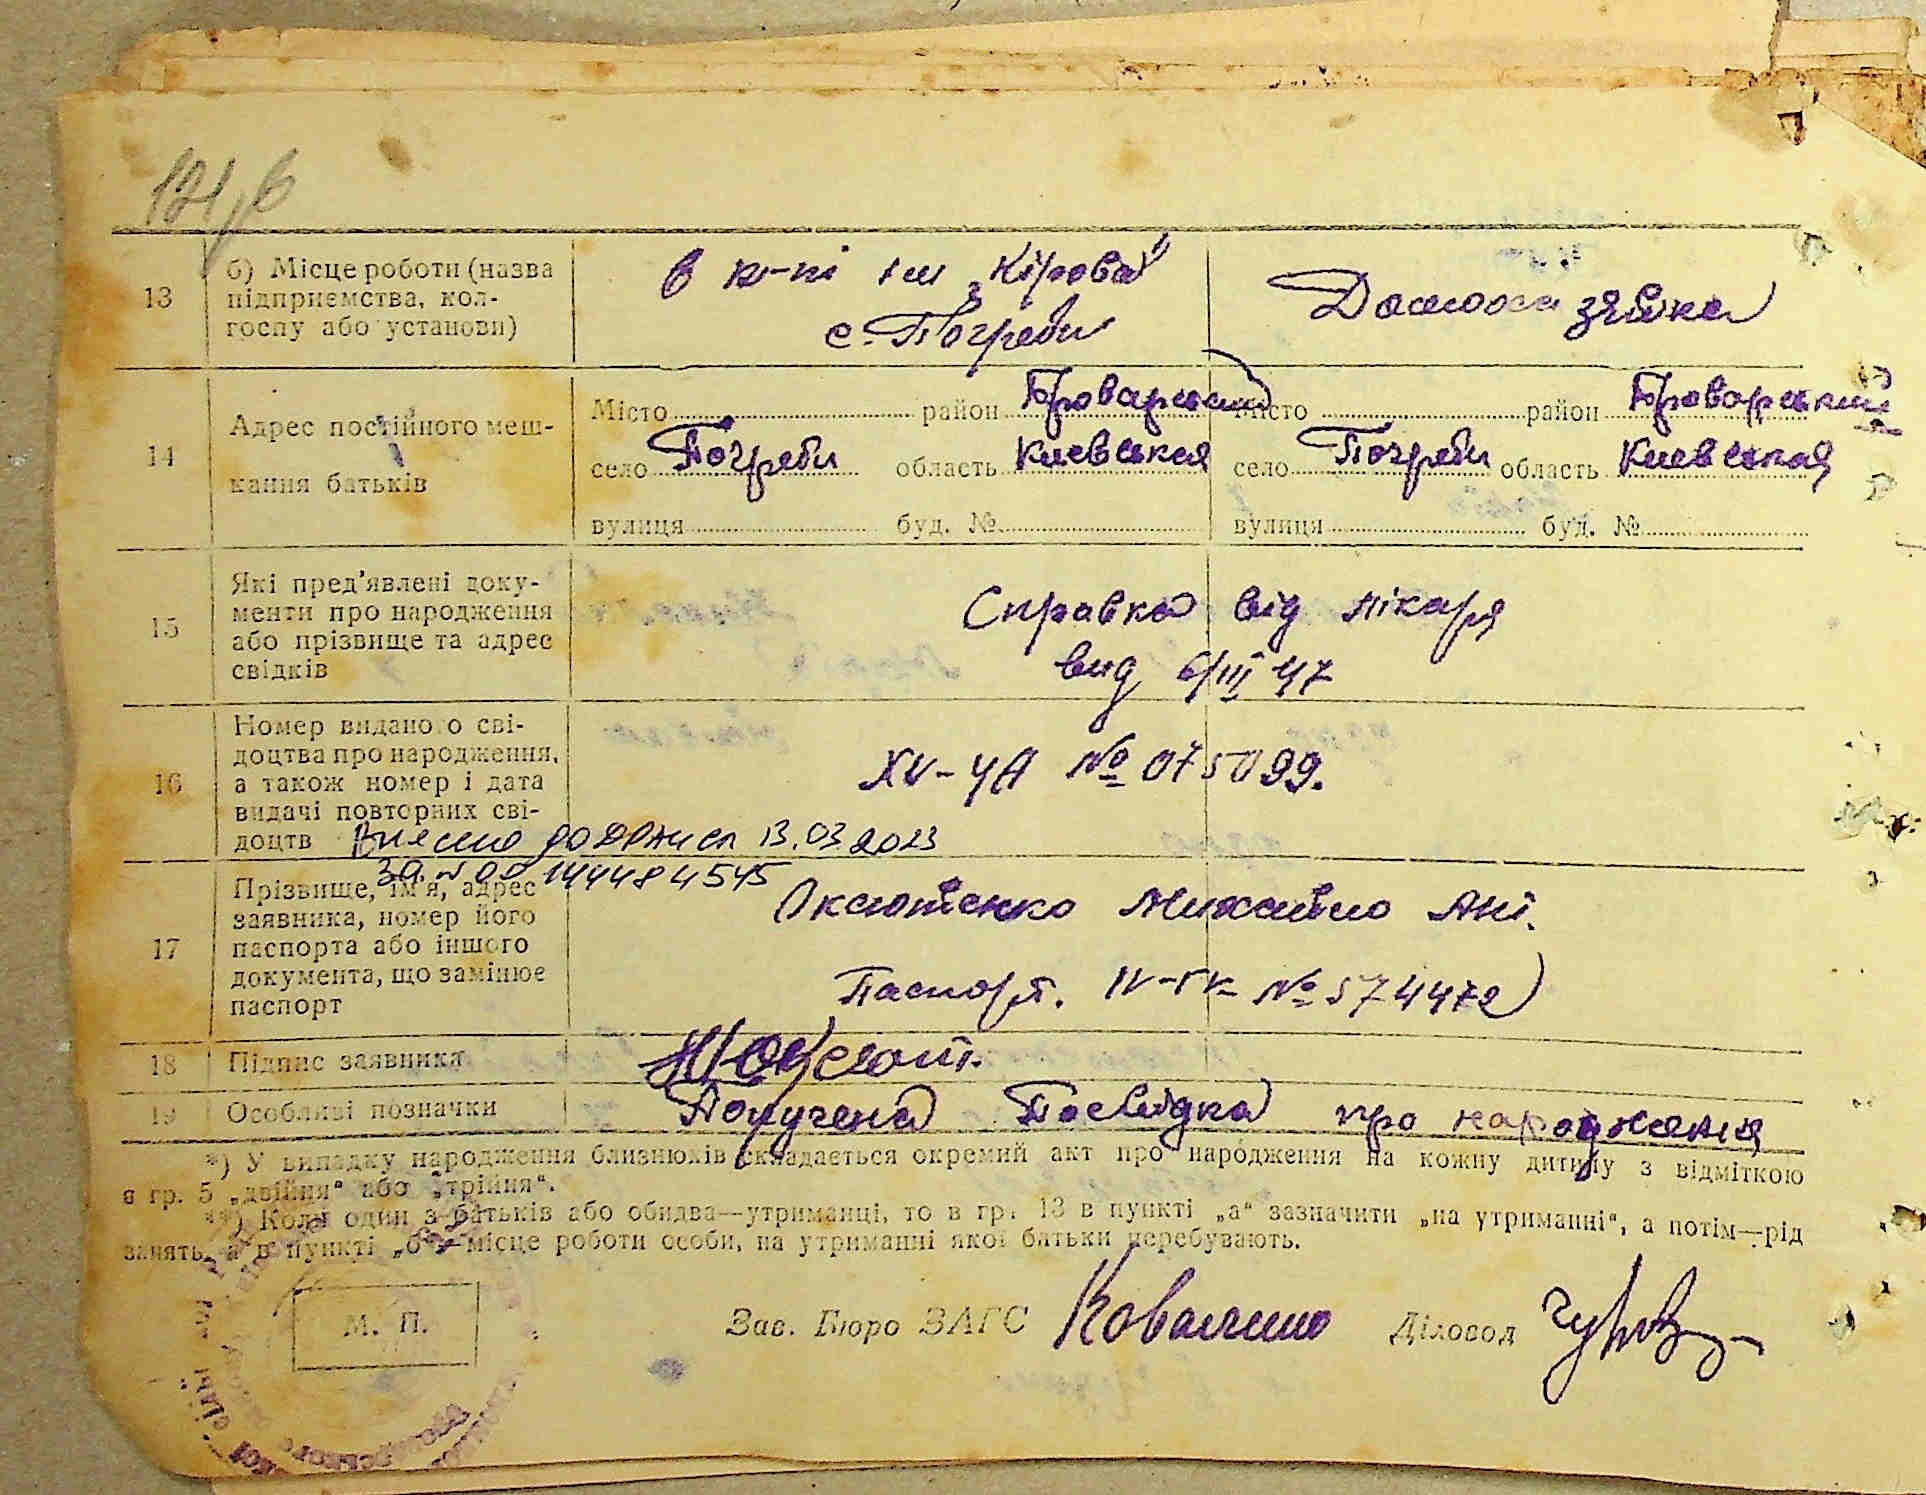 13
б) Місце роботи (назва
підприємства, кол-
госпу або установи)
в к-пі ім „Кірова“
с. Погреби
Домохазяйка
14
Адрес постійного меш-
кання батьків
Місто район Броварський
село Погреби область Киевская
вулиця буд. №
Місто район Броварський
село Погреби область Киевская
вулиця буд. №
15
Які пред'явлені доку-
менти про народження
або прізвище та адрес
свідків
Справка від лікаря
вид 6/III 47
16
Номер виданого сві-
доцтва про народження,
а також номер і дата
видачі повторних сві-
доцтв
XV-ЧА № 075099.
Внесено до ДРАЦСГ 13.03.2023
за № 00144484545
17
Прізвище, ім'я, адрес
заявника, номер його
паспорта або іншого
документа, що замінює
паспорт
Оксютенко Михайло Ані.
Паспорт. № 574472
18
Підпис заявника
19
Особливі позначки
Получена Посвідка про народження
*) У випадку народження близнюків складається окремий акт про народження на кожну дитину з відміткою
в гр. 5 „двійня“ або „трійня“.
**) Коли один з батьків або обидва—утриманці, то в гр. 13 в пункті „а“ зазначити „на утриманні“, а потім—рід
занять, а в пункті „б“—місце роботи особи, на утриманні якої батьки перебувають.
М. П.
Зав. Бюро ЗАГС
Діловод